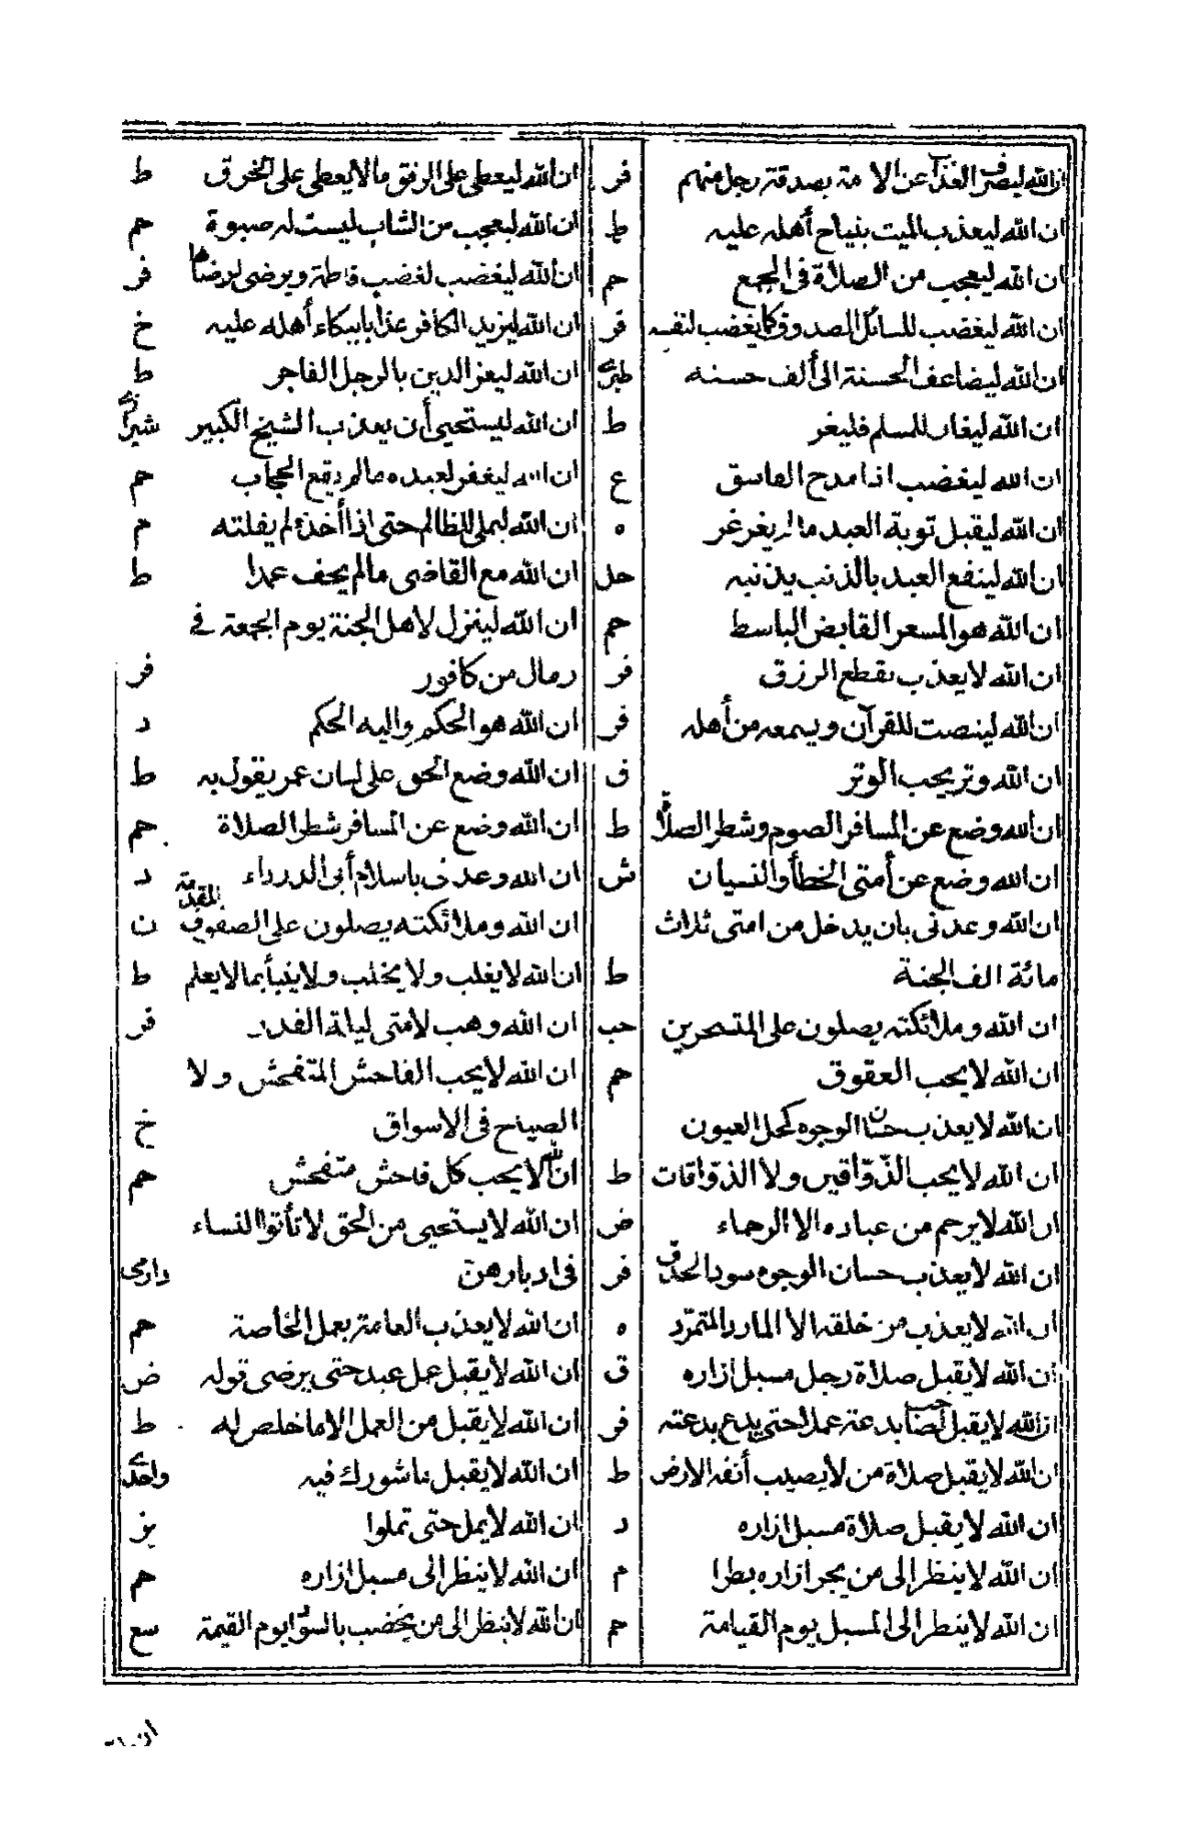 ان الله ليصرف العذاب عن الامة بصدقة رجل منهم فر
ان الله ليعذب الميت بنياح أهله عليه ط
ان الله ليعجب من الصلاة فى الجمع حم
ان الله ليغضب للسائل الصدوق كما يغضب لنفسه فر
ان الله ليضاعف الحسنة الى ألف حسنه طبرى
ان الله ليغار للمسلم فليغر ط
ان الله ليغضب اذا مدح الفاسق ع
ان الله ليقبل توبة العبد مالم يغرغر ه
ان الله لينفع العبد بالذنب يذنبه حل
ان الله هو المسعر القابض الباسط حم
ان الله لا يعذب بقطع الرزق فر
ان الله لينصت للقرآن ويسمعه من أهله فر
ان الله وتر يحب الوتر ق
ان الله وضع عن المسافر الصوم وشطر الصلاة ط
ان الله وضع عن أمتى الخطأ والنسيان ش
ان الله وعدنى بان يدخل من امتى ثلاث
مائة الف الجنة ط
ان الله وملائكته يصلون على المتسحرين حب
ان الله لا يحب العقوق حم
ان الله لا يعذب حسان الوجوه كحل العيون
ان الله لا يحب الذّوّاقين ولا الذوّاقات ط
ان الله لا يرحم من عباده الا الرحماء ض
ان الله لا يعذب حسان الوجوه سود الحدق فر
ان الله لا يعذب من خلقه الا المارد المتمرّد ه
ان الله لا يقبل صلاة رجل مسبل ازاره ق
ان الله لا يقبل لصاحب بدعة عملا حتى يدع بدعته فر
ان الله لا يقبل صلاة من لا يصيب أنفه الارض ط
ان الله لا يقبل صلاة مسبل ازاره د
ان الله لا ينظر الى من يجر ازاره بطرا م
ان الله لا ينظر الى المسبل يوم القيامة حم
ان الله ليعطى على الرفق مالا يعطى على الخرق ط
ان الله ليعجب من الشاب ليست له صبوة حم
ان الله ليغضب لغضب فاطمة ويرضى لرضاها فر
ان الله ليزيد الكافر عذابا ببكاء أهله عليه خ
ان الله ليعز الدين بالرجل الفاجر ط
ان الله ليستحيى أن يعذب الشيخ الكبير شيرازى
ان الله ليغفر لعبده مالم يقع الحجاب حم
ان الله ليملى للظالم حتى اذا أخذه لم يفلته م
ان الله مع القاضى مالم يحف عمدا ط
ان الله لينزل لاهل الجنة يوم الجمعة فى
رمال من كافور فر
ان الله هو الحكم واليه الحكم د
ان الله وضع الحق على لسان عمر يقول به ط
ان الله وضع عن المسافر شطر الصلاة حم
ان الله وعدنى باسلام أبى الدرداء د
ان الله وملائكته يصلون على الصفوف المقدمة ن
ان الله لا يغلب ولا يخلب ولا ينبأ بما لا يعلم ط
ان الله وهب لأمتى ليلة القدر فر
ان الله لا يحب الفاحش المتفحش ولا
الصياح فى الاسواق خ
ان الله لا يحب كل فاحش متفحش حم
ان الله لا يستحيى من الحق لا تأتوا النساء
فى ادبارهنّ دارمى
ان الله لا يعذب العامة بعمل الخاصة حم
ان الله لا يقبل عمل عبد حتى يرضى قوله ض
ان الله لا يقبل من العمل الا ما خلص له ط
ان الله لا يقبل ما شورك فيه واحدى
ان الله لا يمل حتى تملوا بز
ان الله لا ينظر الى مسبل ازاره حم
ان الله لا ينظر الى من يخضب بالسواد يوم القيمة سع